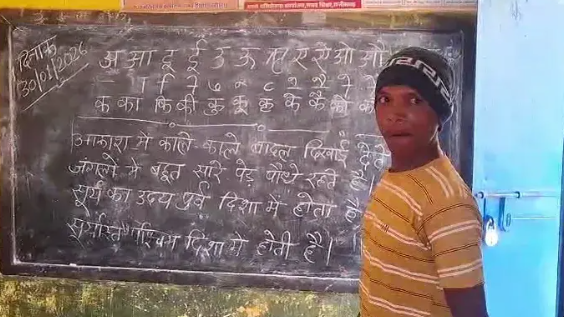 दिनांक
30/01/2026
अ आ इ ई उ ऊ ऋ ए ऐ ओ औ
क का कि की कु कू कृ के कै को क
आकाश में काले काले बादल दिखाई देते
जंगलों में बहुत सारे पेड़ पौधे रहते है।
सूर्य का उदय पूर्व दिशा में होता है
सूर्यास्त पश्चिम दिशा में होती है।